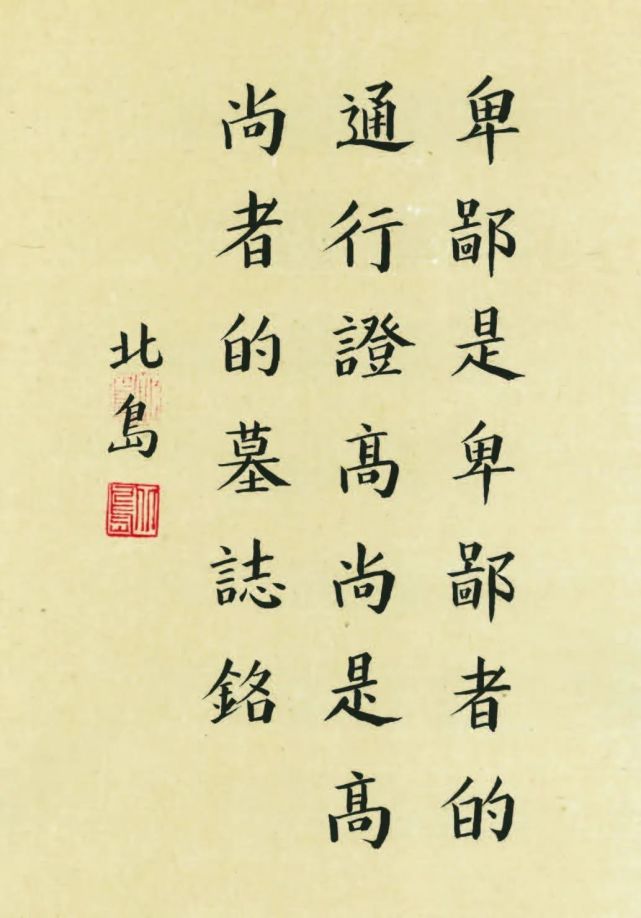 卑鄙是卑鄙者的
通行證高尚是高
尚者的墓誌銘
北島
北島